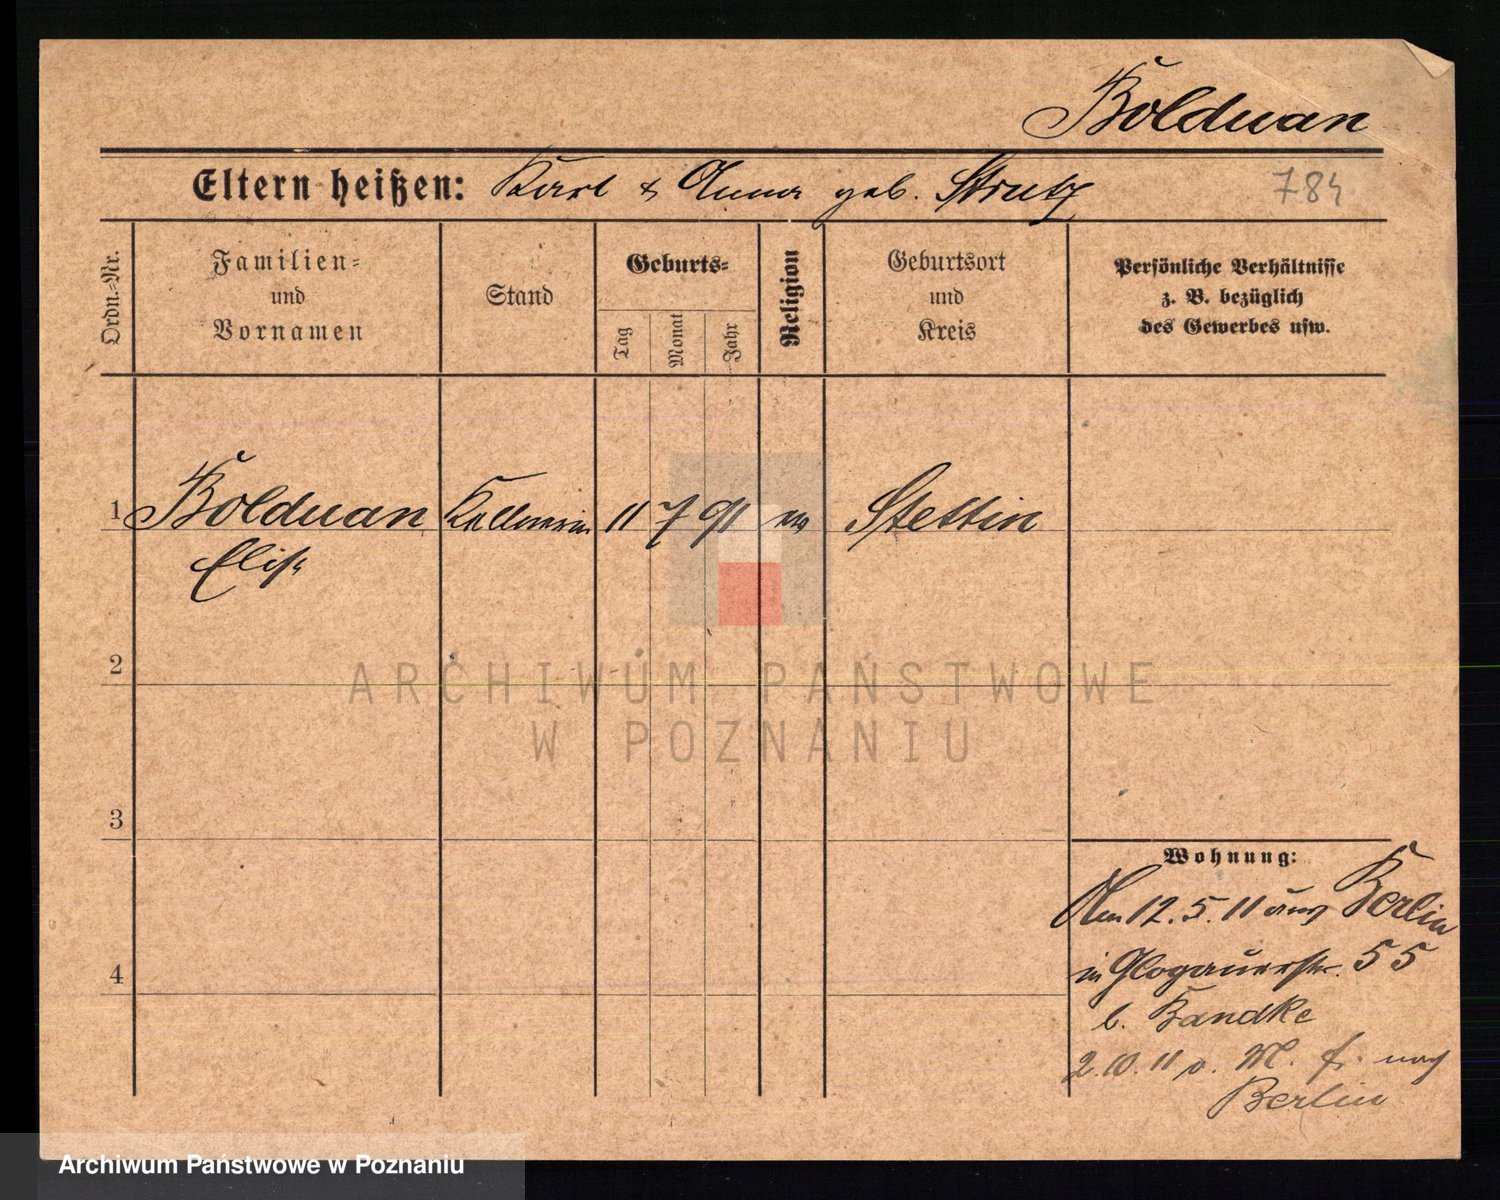 Bolduan
Eltern heißen: Karl & Anna geb. Strutz
784
Ordn.-Nr.
Familien-
und
Vornamen
Stand
Geburts-
Tag
Monat
Jahr
Religion
Geburtsort
und
Kreis
Persönliche Verhältnisse
z. B. bezüglich
des Gewerbes usw.
1 Bolduan Kellnerin 11 7 91 ev Stettin
Elise
2
3
4
Wohnung:
Am 12.5.11 aus Berlin
in Glogauerstr. 55
b. Handke
2.10.11 v. M. fr. nach
Berlin
ARCHIWUM PAŃSTWOWE
W POZNANIU
Archiwum Państwowe w Poznaniu